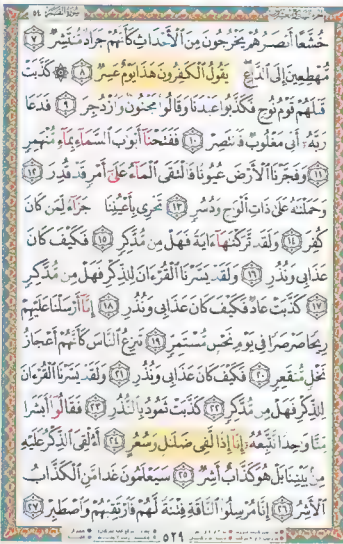 سورة القمر ٥٤
خُشَّعًا أَبْصَٰرُهُمْ يَخْرُجُونَ مِنَ ٱلْأَجْدَاثِ كَأَنَّهُمْ جَرَادٌ مُّنتَشِرٌ ٧
مُّهْطِعِينَ إِلَى ٱلدَّاعِ يَقُولُ ٱلْكَٰفِرُونَ هَٰذَا يَوْمٌ عَسِرٌ ٨ ۞ كَذَّبَتْ
قَبْلَهُمْ قَوْمُ نُوحٍ فَكَذَّبُوا۟ عَبْدَنَا وَقَالُوا۟ مَجْنُونٌ وَٱزْدُجِرَ ٩ فَدَعَا
رَبَّهُۥٓ أَنِّى مَغْلُوبٌ فَٱنتَصِرْ ١٠ فَفَتَحْنَآ أَبْوَٰبَ ٱلسَّمَآءِ بِمَآءٍ مُّنْهَمِرٍ
١١ وَفَجَّرْنَا ٱلْأَرْضَ عُيُونًا فَٱلْتَقَى ٱلْمَآءُ عَلَىٰٓ أَمْرٍ قَدْ قُدِرَ ١٢
وَحَمَلْنَٰهُ عَلَىٰ ذَاتِ أَلْوَٰحٍ وَدُسُرٍ ١٣ تَجْرِى بِأَعْيُنِنَا جَزَآءً لِّمَن كَانَ
كُفِرَ ١٤ وَلَقَد تَّرَكْنَٰهَآ ءَايَةً فَهَلْ مِن مُّدَّكِرٍ ١٥ فَكَيْفَ كَانَ
عَذَابِى وَنُذُرِ ١٦ وَلَقَدْ يَسَّرْنَا ٱلْقُرْءَانَ لِلذِّكْرِ فَهَلْ مِن مُّدَّكِرٍ
١٧ كَذَّبَتْ عَادٌ فَكَيْفَ كَانَ عَذَابِى وَنُذُرِ ١٨ إِنَّآ أَرْسَلْنَا عَلَيْهِمْ
رِيحًا صَرْصَرًا فِى يَوْمِ نَحْسٍ مُّسْتَمِرٍّ ١٩ تَنزِعُ ٱلنَّاسَ كَأَنَّهُمْ أَعْجَازُ
نَخْلٍ مُّنقَعِرٍ ٢٠ فَكَيْفَ كَانَ عَذَابِى وَنُذُرِ ٢١ وَلَقَدْ يَسَّرْنَا ٱلْقُرْءَانَ
لِلذِّكْرِ فَهَلْ مِن مُّدَّكِرٍ ٢٢ كَذَّبَتْ ثَمُودُ بِٱلنُّذُرِ ٢٣ فَقَالُوٓا۟ أَبَشَرًا
مِّنَّا وَٰحِدًا نَّتَّبِعُهُۥٓ إِنَّآ إِذًا لَّفِى ضَلَٰلٍ وَسُعُرٍ ٢٤ أَءُلْقِىَ ٱلذِّكْرُ عَلَيْهِ
مِنۢ بَيْنِنَا بَلْ هُوَ كَذَّابٌ أَشِرٌ ٢٥ سَيَعْلَمُونَ غَدًا مَّنِ ٱلْكَذَّابُ
ٱلْأَشِرُ ٢٦ إِنَّا مُرْسِلُوا۟ ٱلنَّاقَةِ فِتْنَةً لَّهُمْ فَٱرْتَقِبْهُمْ وَٱصْطَبِرْ ٢٧
٥٢٩